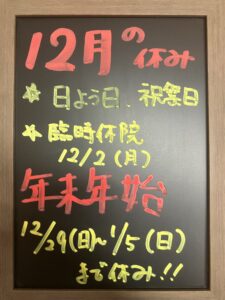 12月の休み
☆ 日よう日、祝祭日
☆ 臨時休院
12/2(月)
年末年始
12/29(日)〜1/5(日)
まで休み!!